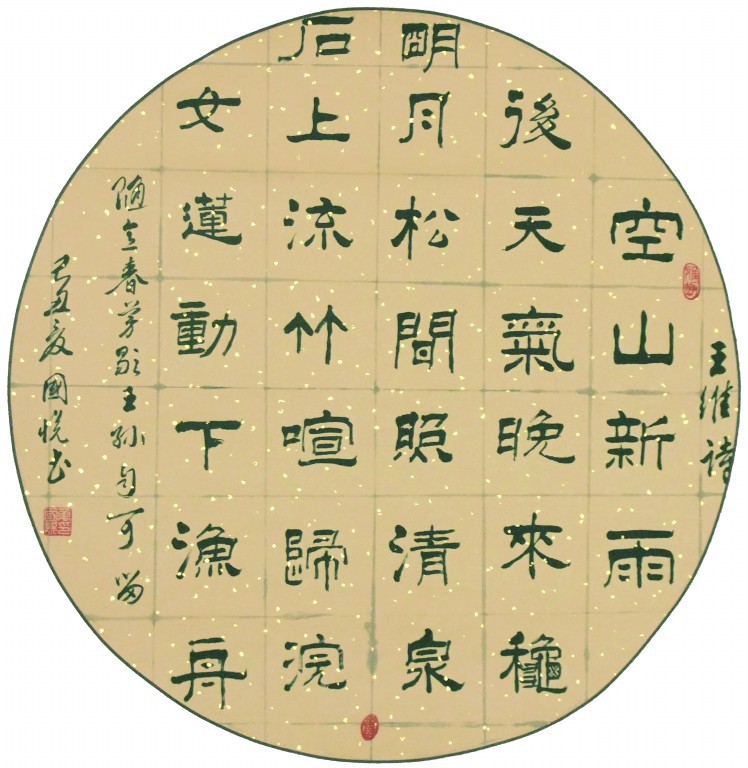 王維詩
空山新雨
後天氣晚來龝
明月松間照清泉
石上流竹喧歸浣
女蓮動下漁舟
隨意春芳歇王孫自可留
己丑夏國悅书